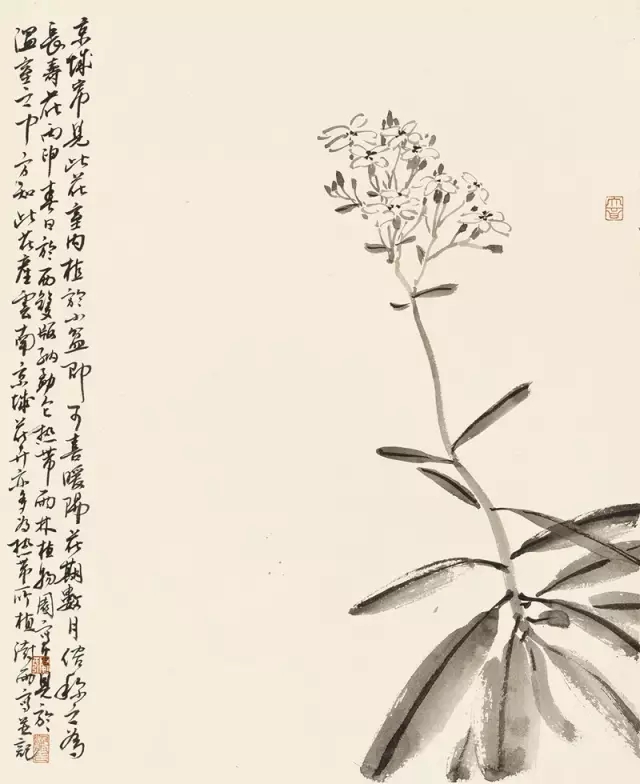 京城常見此花室内植於小盆即可喜暖陽花期數月俗稱之為
長壽花丙申春日於西雙版納勐仑热带雨林植物園見於
温室之中方知此花產雲南京城花卉亦多为热带所植雨寫並記